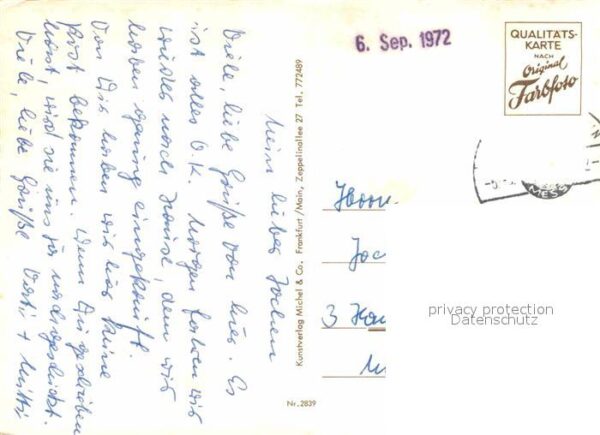 Mein lieber Jochen
Viele, liebe Grüße von hier. Es
ist alles O.K. Morgen fahren wir
wieder nach Hause, denn wir
haben genug eingekauft.
Von Dir haben wir hier keine
Post bekommen. Wenn Du geschrieben
hast, wird sie uns ja nachgeschickt.
Viele, liebe Grüße Vati + Mutti
Kunstverlag Michel & Co. Frankfurt/Main, Zeppelinallee 27 Tel. 772489
Nr. 2839
6. Sep. 1972
QUALITÄTS-
KARTE
NACH
Original
Farbfoto
MESS
Joc
3 Han
privacy protection
Datenschutz